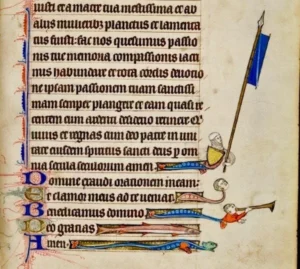 iusti et a matre tua mestissima et ab
aliis mulieribus planctus et lamenta
tus fuisti: fac nos quesumus passio
nis tue memoria compassionis lacri
mis habundare et tota cordis deuotio
ne ipsam passionem tuam sanctissi
mam semper plangere et eam quasi re
centem cum ardenti desiderio retinere Q
uiuis et regnas cum deo patre in uni
tate eiusdem spiritus sancti deus p om
nia secula seculorum amen
Domine exaudi orationem meam:
Et clamor meus ad te ueniat
Benedicamus domino
Deo gratias
Amen